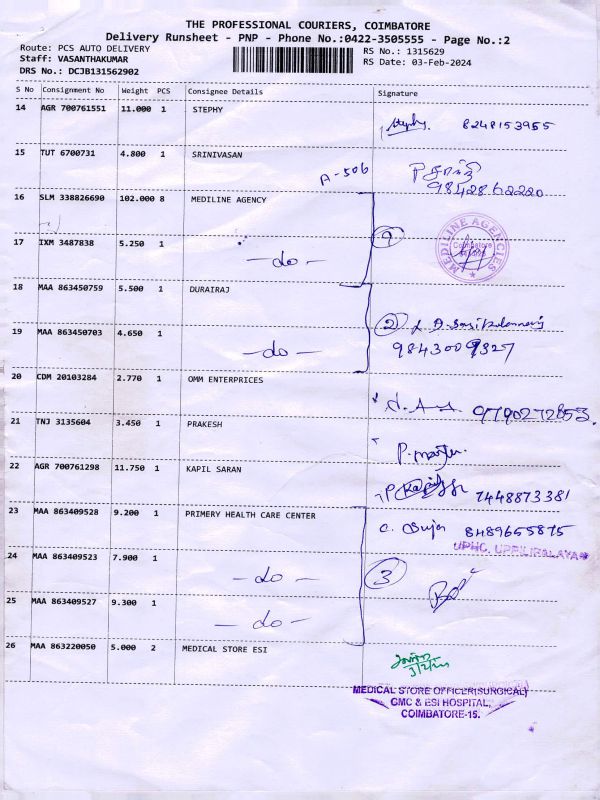 THE PROFESSIONAL COURIERS, COIMBATORE
Delivery Runsheet - PNP - Phone No.:0422-3505555 - Page No.:2
Route: PCS AUTO DELIVERY
RS No.: 1315629
Staff: VASANTHAKUMAR
RS Date: 03-Feb-2024
DRS No.: DCJB131562902
S No Consignment No Weight PCS Consignee Details Signature
14 AGR 700761551 11.000 1 STEPHY
Stephy. 8248153955
15 TUT 6700731 4.800 1 SRINIVASAN
A-506
9842862220
16 SLM 338826690 102.000 8 MEDILINE AGENCY
MEDILINE AGENCIES
Coimbatore
17 IXM 3487838 5.250 1
-do-
18 MAA 863450759 5.500 1 DURAIRAJ
2
19 MAA 863450703 4.650 1
-do- 9843009327
20 CDM 20103284 2.770 1 OMM ENTERPRICES
9790272853.
21 TNJ 3135604 3.450 1 PRAKESH
22 AGR 700761298 11.750 1 KAPIL SARAN
7448873381
23 MAA 863409528 9.200 1 PRIMERY HEALTH CARE CENTER
8489655875
UPHC,
24 MAA 863409523 7.900 1
-do- 3
25 MAA 863409527 9.300 1
-do-
26 MAA 863220050 5.000 2 MEDICAL STORE ESI
MEDICAL STORE OFFICER(SURGICAL)
GMC & ESI HOSPITAL,
COIMBATORE-15.